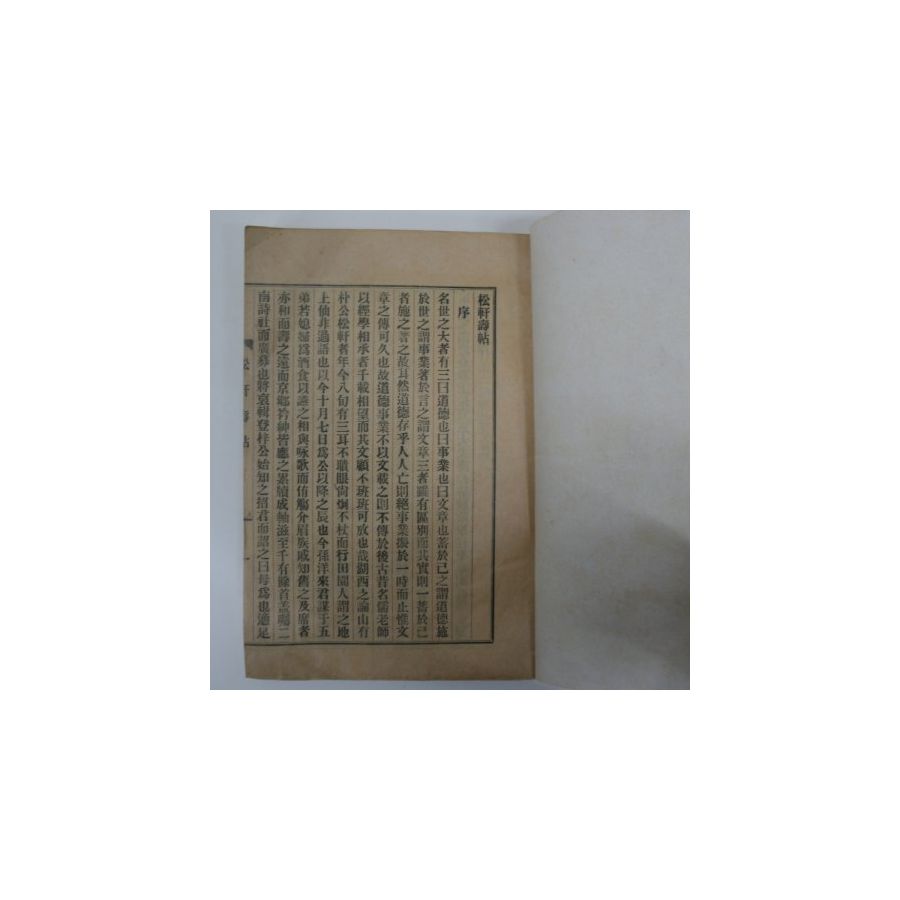 松軒壽帖
序
名世之大者有三曰道德也曰事業也曰文章也蓄於己之謂道德施
於世之謂事業著於言之謂文章三者雖有區別而其實則一蓄於己
者施之著之故耳然道德存乎人人亡則絕事業振於一時而止惟文
章之傳可久也故道德事業不以文載之則不傳於後古昔名儒老師
以經學相承者千載相望而其文顧不班班可放也哉湖西之論山有
朴公松軒者年今八旬有三耳不聵眼尙炯不杖而行田園人謂之地
上仙非過語也以今十月七日爲公以降之辰也今孫洋來君謀于五
弟若媳婦爲酒食以讌之相與咏歌而侑觴分眉族戚知舊之及席者
亦和而壽之遠而京鄉衿紳皆應之累牘成軸滋至千有餘首盖囑二
南詩社而廣募也將裒輯登梓公始知之招君而謂之曰毋爲也適足
松軒壽帖
序
一